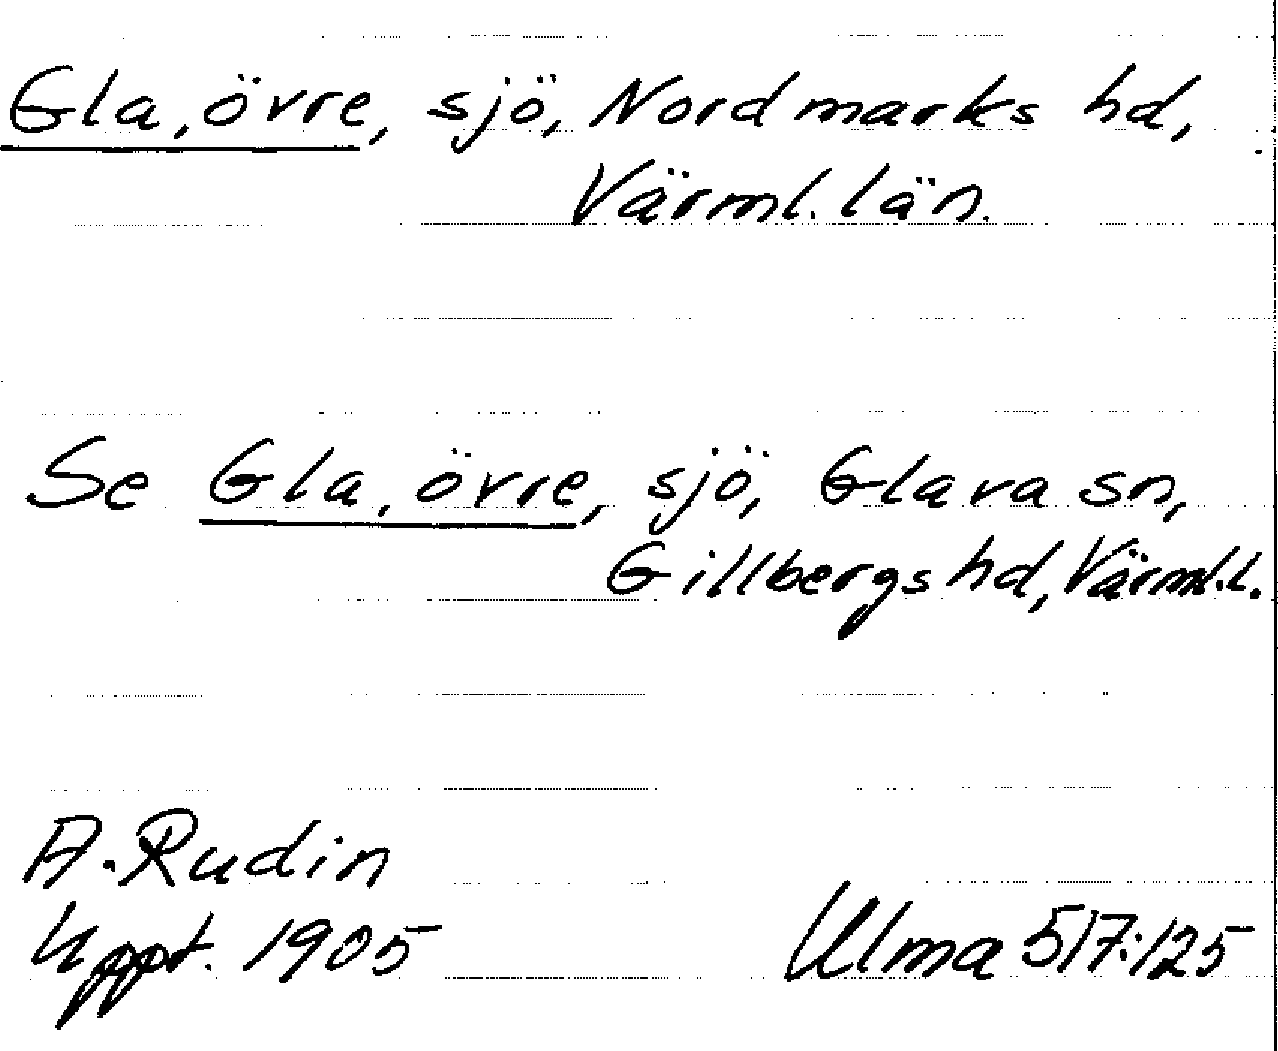 Gla, övre, sjö, Nordmarks hd,
Värml. län.
Se Gla, övre, sjö, Glava sn,
Gillbergs hd, Värml.l.
A. Rudin
Uppt. 1905
Ulma 517:125